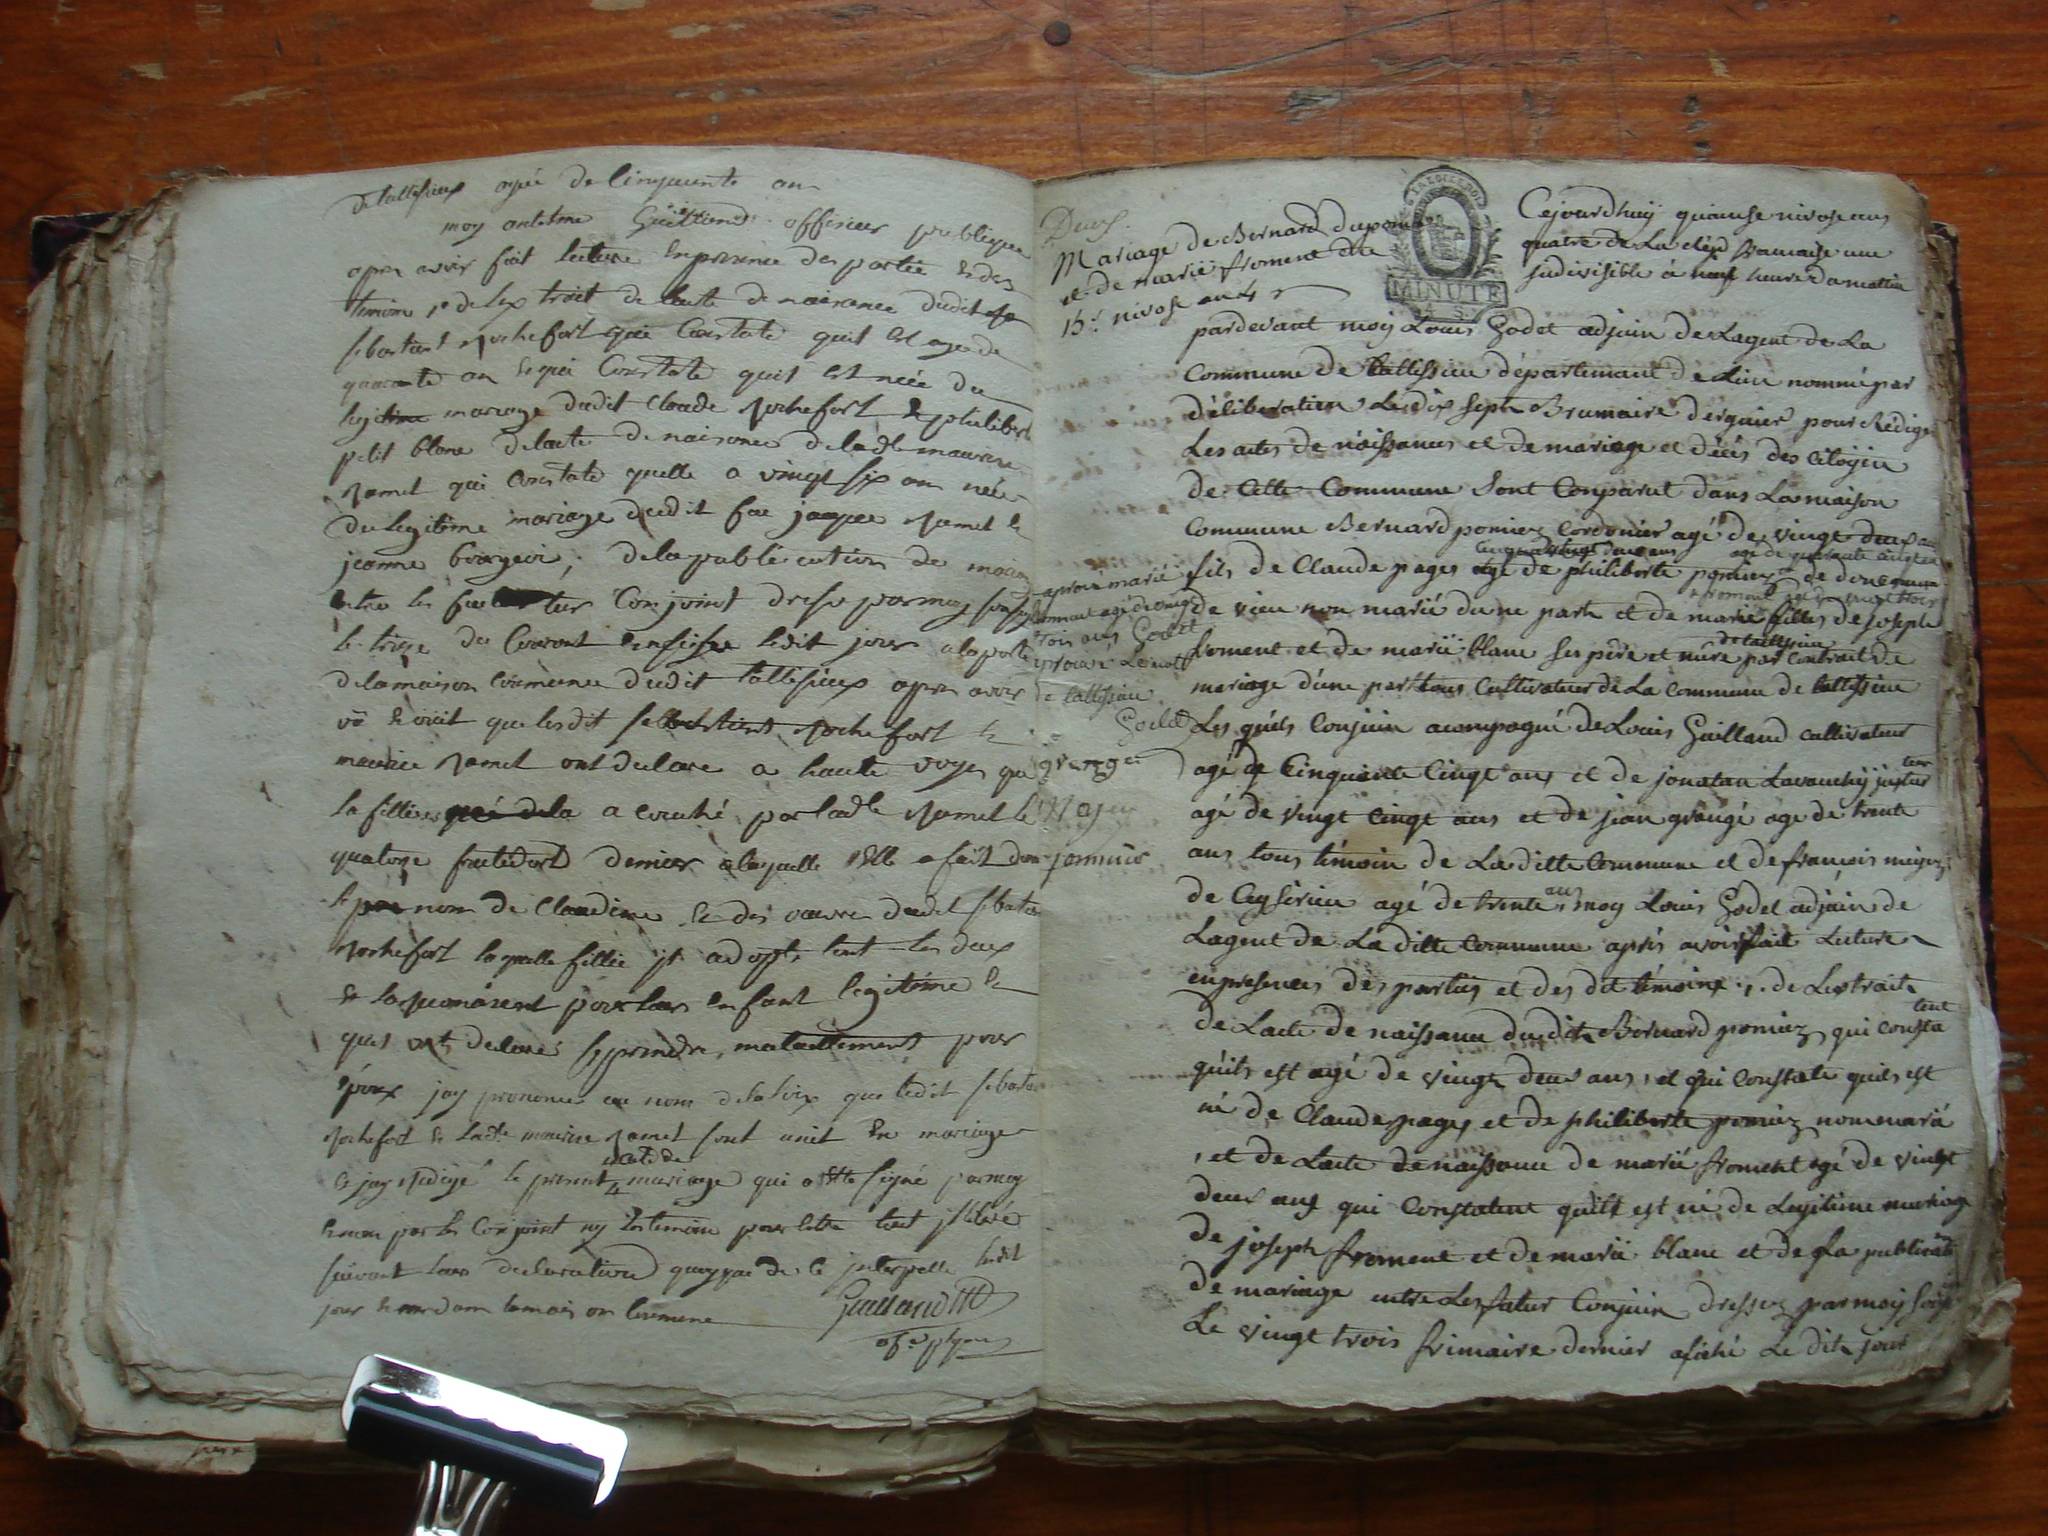 de tallisieux agée de Cinquante an
moy antelme Guilliend officier publique
apres avoir fait lecture En presence des partie & des
temoins de lex trait de lacte de naissance dudit
sebastient rochefort qui Constate quil Est age de
quarante an & qui Constate quil est née du
legitime mariage dudit claude rochefort & philiberte
petit blanc de lacte de naisance de ladte maurise
ramel qui Constate quelle a vingt six an née
du legitime mariage dudit feu jaque ramel &
jeanne bourgeoi, de la publication de mariage
entre les futur Conjoint dresse par moy
le treize du Courant & afiche ledit jour a la porte
de la maison commune dudit tallisieux apres avoir
que lesdit sebastient rochefort &
maurise ramel ont declare a haute voye que
la fillie a couché par ladte ramel le
quatorze fructidort dernier a laquelle Elle a fait don
nom de Claudine & des oeuvre dudit sebastien
rochefort laquelle fillie adopte tout les deux
& la pour leur enfant legitime &
ques ont declaré se prendre mutuellement pour
époux jay prononcé au nom de la loix que ledit sebastien
rochefort & ladte maurise ramel sont unit En mariage
acte de
& jay redigé le present mariage qui a Ette signé par moy
& non par les Conjoint ny les temoin pour Estre tout
suivant leur declaration de ce interpelle ledit
jour & an
Guilliend
of. p.
Deux
Mariage de Bernard du pomiez
et de marië froment dite
15.e nivose an 4
MINUTE
Cejourdhuÿ quinse nivose ans
quatre de La rép francaise une
jndivisible à neuf heure du matin
pardevant moy Louis Godet adjoin de Lagent de La
Commune de tallissieu département de Lin nommé par
déliberation Le dix sept Brumaire dernier pour Rediger
Les actes de naissances et de mariage et décés des citoyen
de Cette Commune Sont Conparut dans La maison
Commune Bernard pomiez Cordonier agé de vingt deux ans
agé de quarante cinq ans
fils de Claude pages de philiberte pomiez
de vieu non marié dune part et de marie filles de joseph
de tallissieu
froment et de mariï blanc ses pere et mere par contrait de
mariage dune part tous Cultivateur de La commune de tallissieu
Les quels Conjoin acompagné de Louis Guilland cultivateur
agé de Cinquante Cinqt ans et de jonatan Lavanchy
agé de vingt Cinqt ans et de jean grangé age de trente
ans tous témoin de La ditte Commune et de francois
ans
de Ceyserieu agé de trente moy Louis Godet adjoin de
Lagent de La ditte Commune après avoir fait Lecture
en presences des parties et des dit témoins, de Lextrait
tent
de Lacte de naissance du dit Bernard pomiez qui consta
quils est agé de vingt deux ans, et qui constate quils est
né de Claude pages et de philiberte pomiez nommarié
, et de Lacte de naissance de marié froment agé de vingt
deux ans qui Constatent quilt est né de Legitime mariage
de joseph froment et de marië blanc et de La publication
de mariage entre Les futur Conjoin dresser par moy
Le vingt trois frimaire dernier afiché Le dit jour
aprouvé marié
froment agé de vingt
trois ans Godet
aprouvé Le mot
de tallissieu
Godet
granger